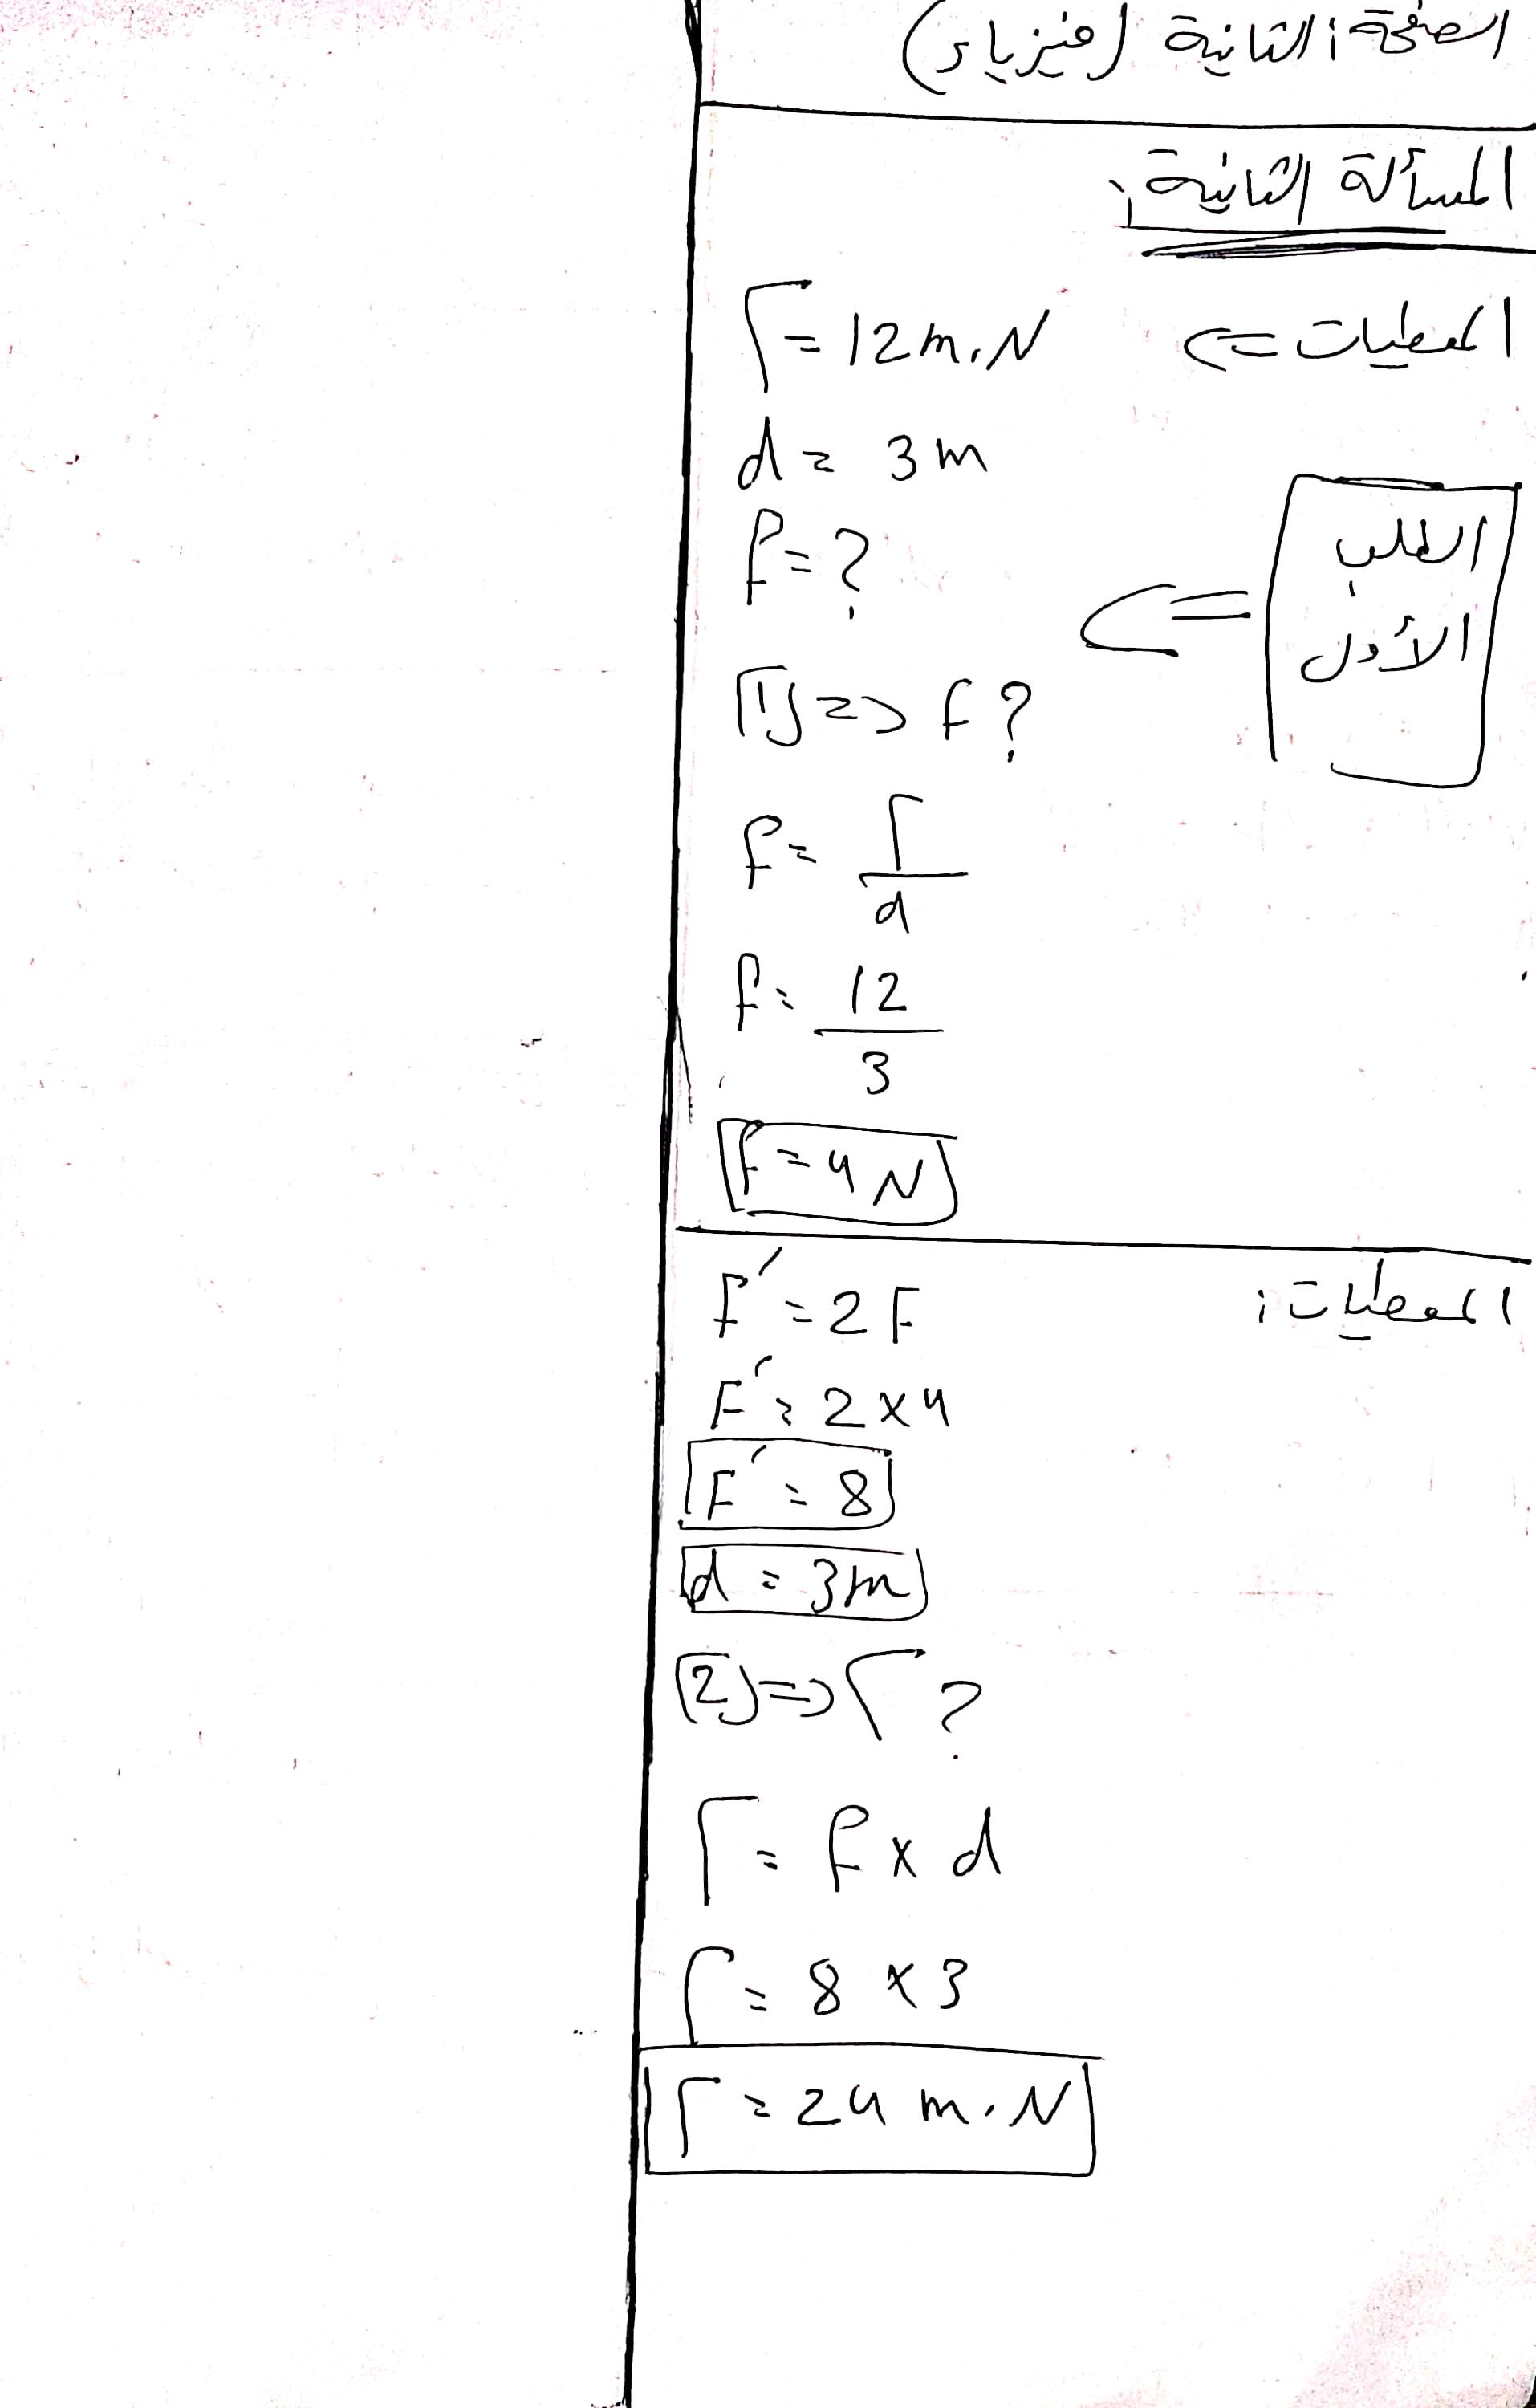 الصفحة الثانية (فيزياء)
المسألة الثانية:
المعطيات => Γ = 12 m.N
d = 3 m
f = ?
الطلب
الأول
[1] => f ?
f = Γ / d
f = 12 / 3
F = 4 N
المعطيات:
F' = 2F
F' = 2 x 4
F' = 8
d = 3m
[2] => Γ ?
Γ = f x d
Γ = 8 x 3
Γ = 24 m.N